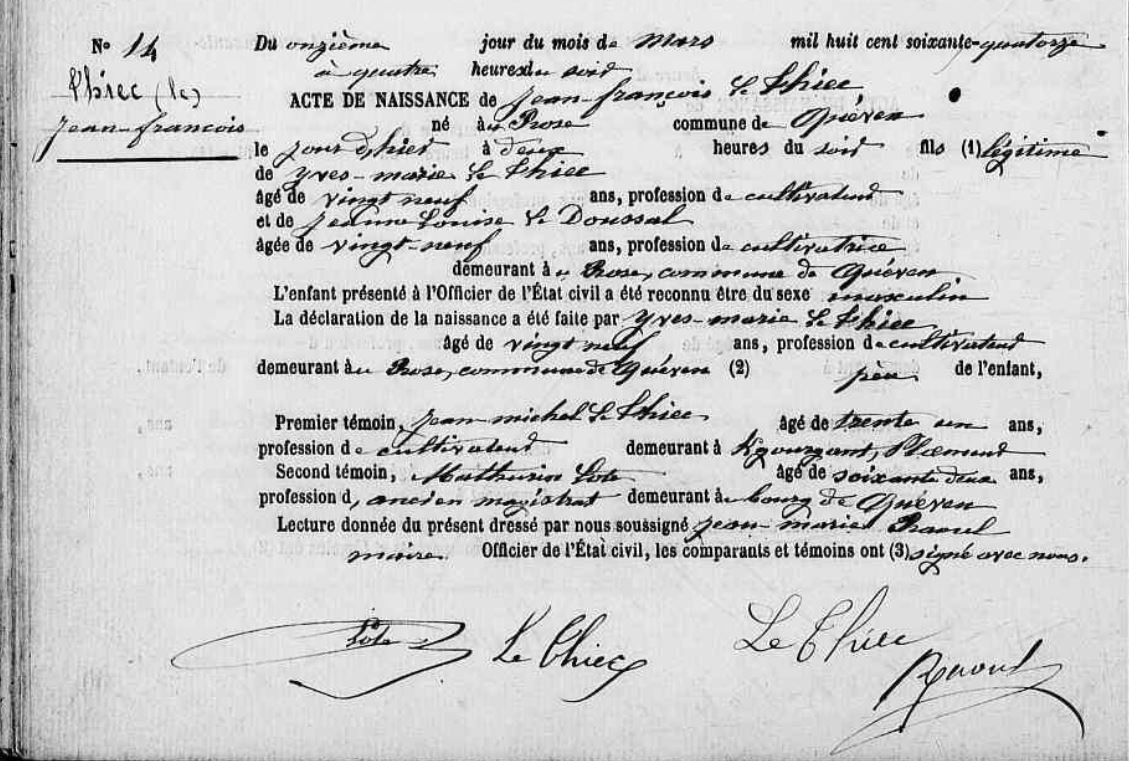 N° 14
Thiec (le)
Jean-francois
Du onzième jour du mois de Mars mil huit cent soixante-quatorze
à quatre heures du soir
ACTE DE NAISSANCE de Jean-françois Le Thiec
né au Rose commune de Quéven
le jour d'hier à deux heures du soir fils (1) légitime
de Yves-marie Le Thiec
âgé de vingt neuf ans, profession de cultivateur
et de Jeanne Louise Le Doussal
âgée de vingt-neuf ans, profession de cultivatrice
demeurant au Rose, commune de Quéven
L'enfant présenté à l'Officier de l'État civil a été reconnu être du sexe masculin
La déclaration de la naissance a été faite par Yves-marie Le Thiec
âgé de vingt neuf ans, profession de cultivateur
demeurant au Rose, commune de Quéven (2) père de l'enfant,
Premier témoin, Jean michel Le Thiec âgé de trente un ans,
profession de cultivateur demeurant à Kgourgant, Plœmeur
Second témoin, Mathurin Lote âgé de soixante deux ans,
profession d, ancien magistrat demeurant au bourg de Quéven
Lecture donnée du présent dressé par nous soussigné Jean-marie Raoul
maire. Officier de l'État civil, les comparants et témoins ont (3) signé avec nous.
Lote Le Thiec Le Thiec
Raoul